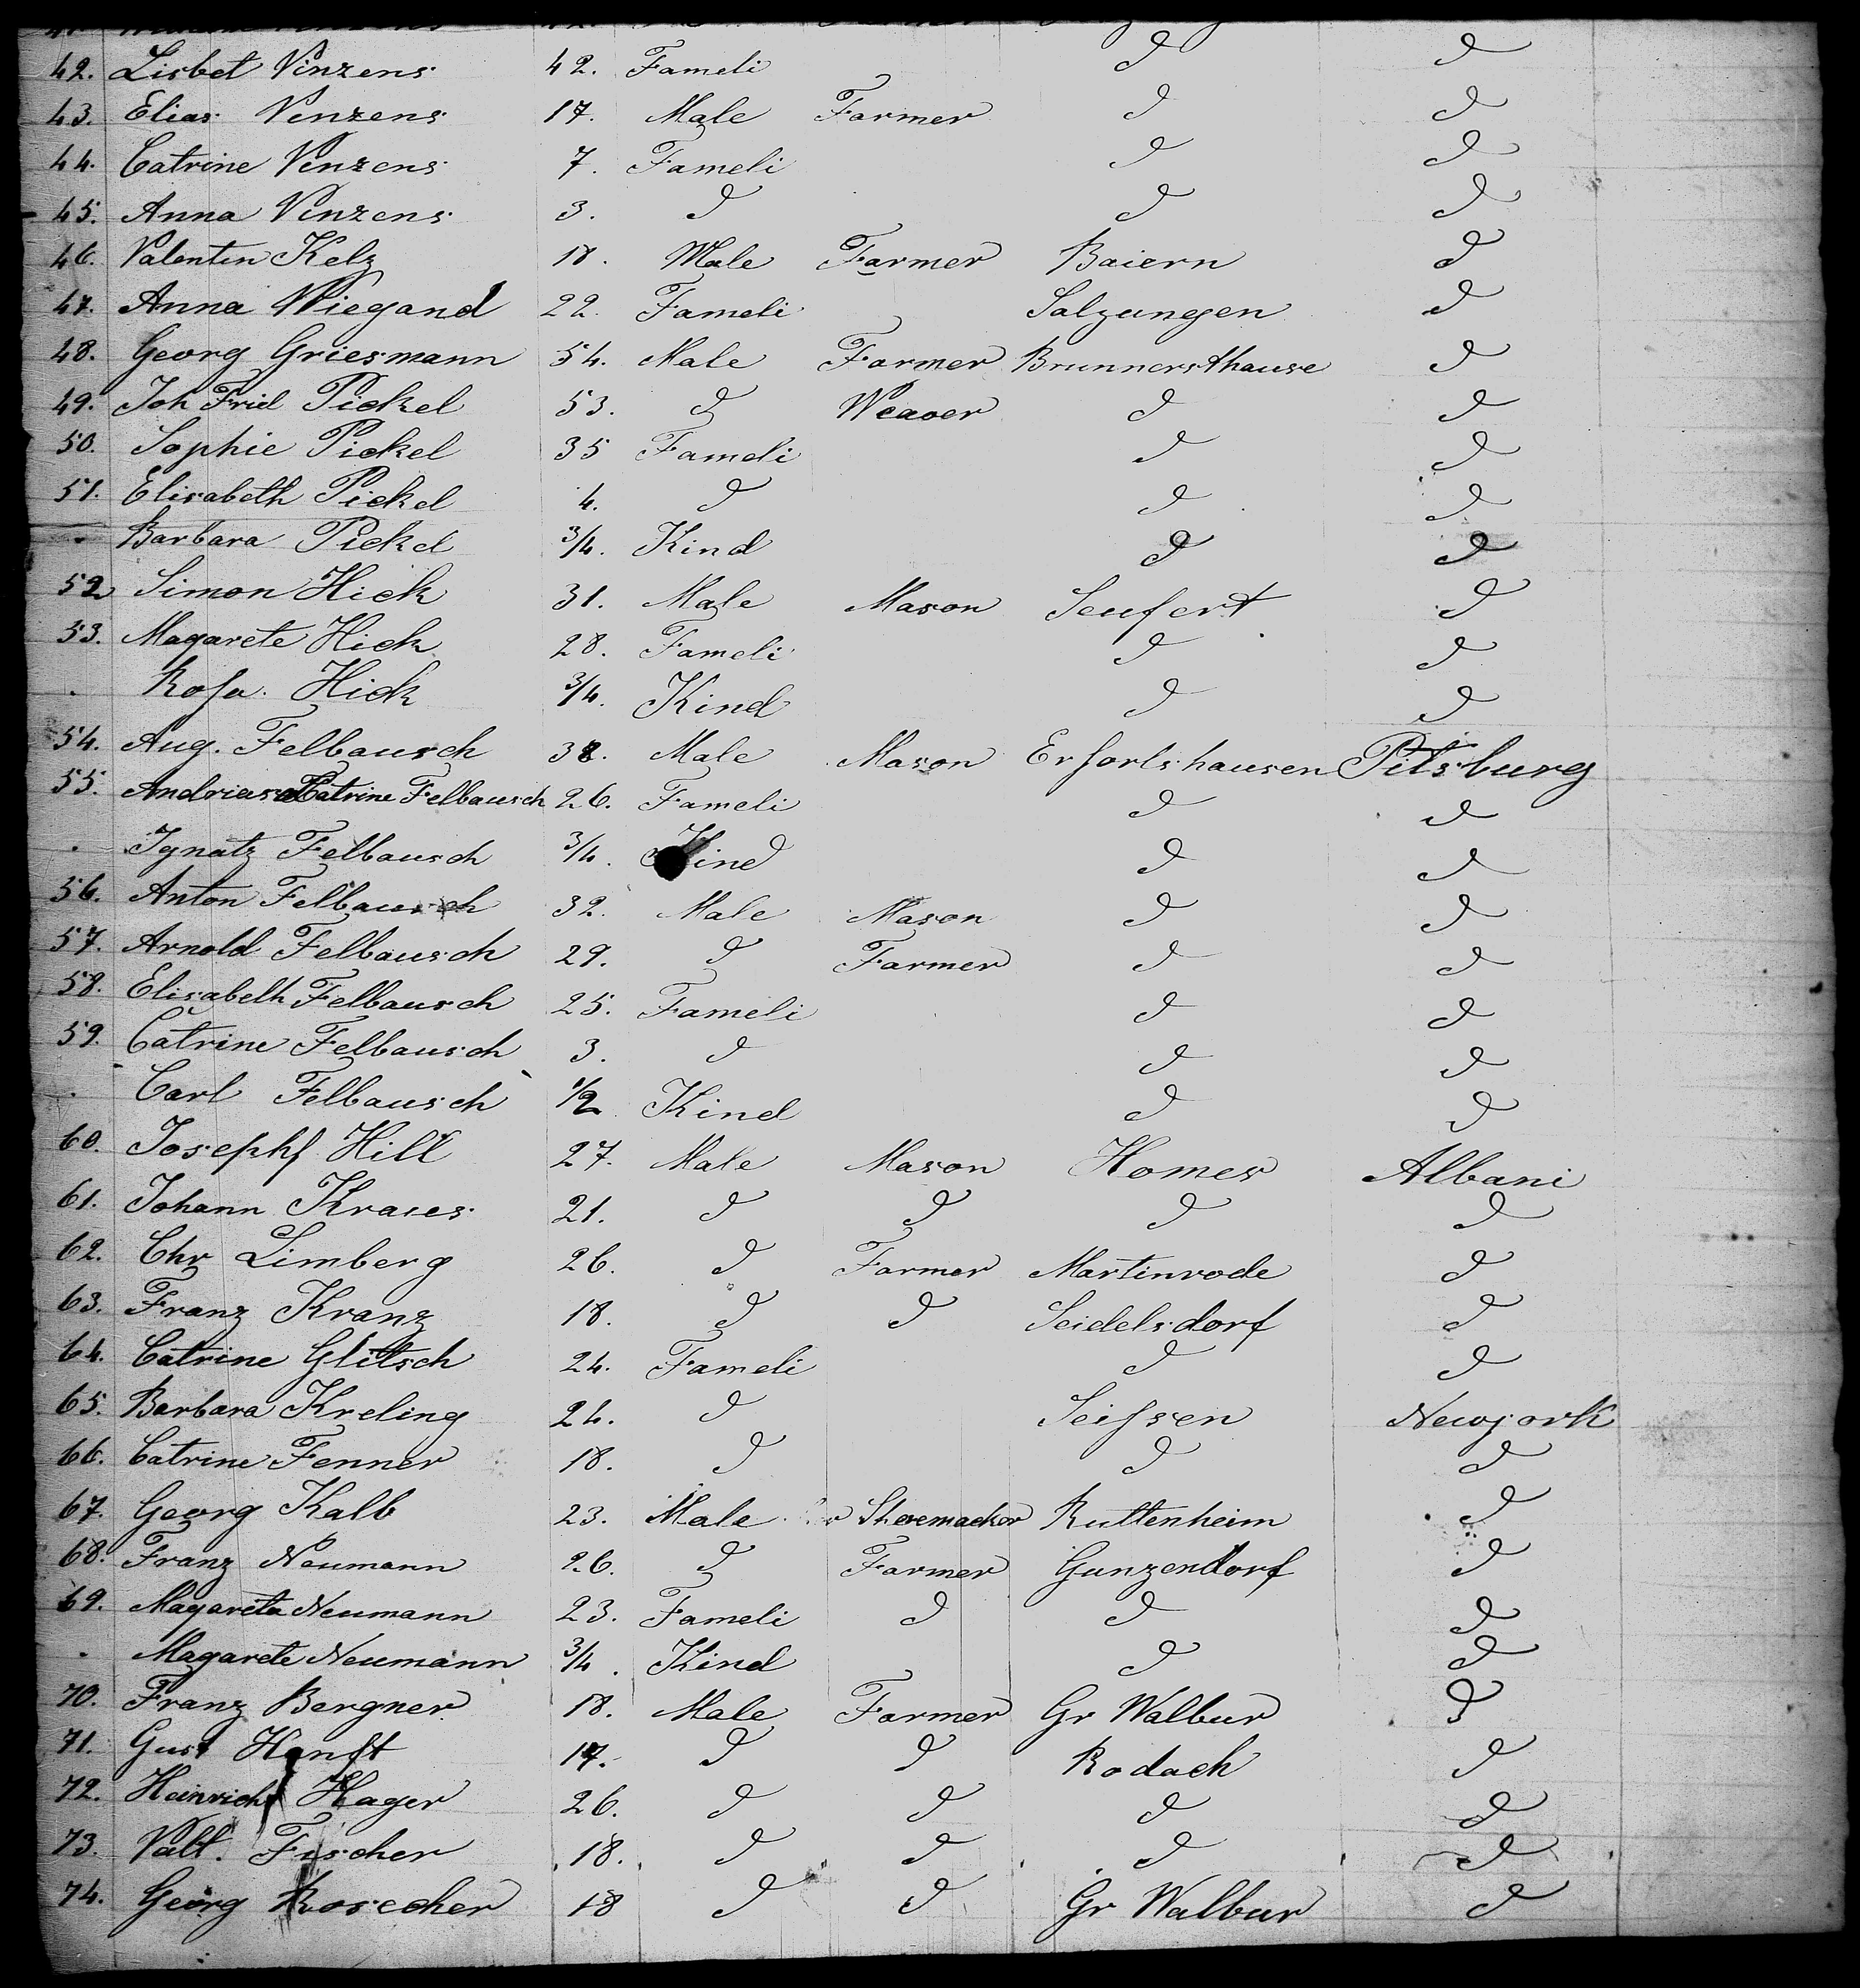 42. Lisbet Vinzens 42. Fameli d d
43. Elias Vinzens 17. Male Farmer d d
44. Catrine Vinzens 7. Fameli d d
45. Anna Vinzens 3. d d d
46. Valentin Kelz 18. Male Farmer Baiern d
47. Anna Wiegand 22. Fameli Salzungen d
48. Georg Griesmann 54. Male Farmer Brunnersthause d
49. Joh Frid Pickel 53. d Weaver d d
50. Sophie Pickel 35 Fameli d d
51. Elisabeth Pickel 4. d d d
. Barbara Pickel 3/4. Kind d d
52 Simon Hick 31. Male Mason Seufert d
53. Magarete Hick 28. Fameli d d
. Rosa. Hick 3/4. Kind d d
54. Aug. Felbausch 38. Male Mason Erforlshausen Pitsburg
55. Catrine Felbausch 26. Fameli d d
. Ignatz Felbausch 3/4. Kind d d
56. Anton Felbausch 32. Male Mason d d
57. Arnold Felbausch 29. d Farmer d d
58. Elisabeth Felbausch 25. Fameli d d
59. Catrine Felbausch 3. d d d
. Carl Felbausch 1/2 Kind d d
60. Josephf Hill 27. Male Mason Homes Albani
61. Johann Kraus 21. d d d d
62. Chr Limberg 26. d Farmer Martinrode d
63. Franz Kranz 18. d d Seidelsdorf d
64. Catrine Glitsch 24. Fameli d d
65. Barbara Kreling 24. d Seifsen Newjork
66. Catrine Fenner 18. d d d
67. Georg Kalb 23. Male Shoemacker Buttenheim d
68. Franz Neumann 26. d Farmer Gunzendorf d
69. Magareta Neumann 23. Fameli d d d
. Magarete Neumann 3/4. Kind d d
70. Franz Bergner 18. Male Farmer Gr Walbur d
71. Gust Hanft 17. d d Rodach d
72. Heinrich Hager 26. d d d d
73. Valt. Fischer 18. d d d d
74. Georg Rosecher 18 d d Gr Walbur d